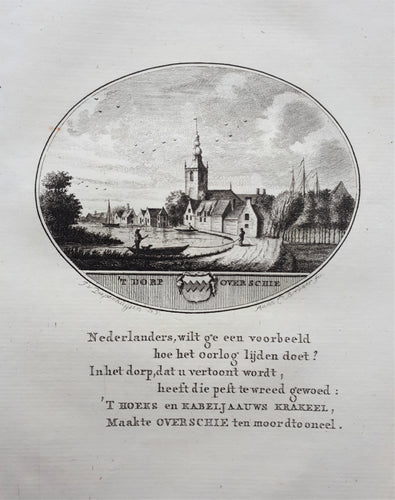 'T DORP OVERSCHIE
Nederlanders, wilt ge een voorbeeld
hoe het oorlog lijden doet?
In het dorp, dat u vertoont wordt,
heeft die pest te wreed gewoed:
'T HOEKS en KABELJAAUWS KRAKEEL,
Maakte OVERSCHIE ten moordtooneel.